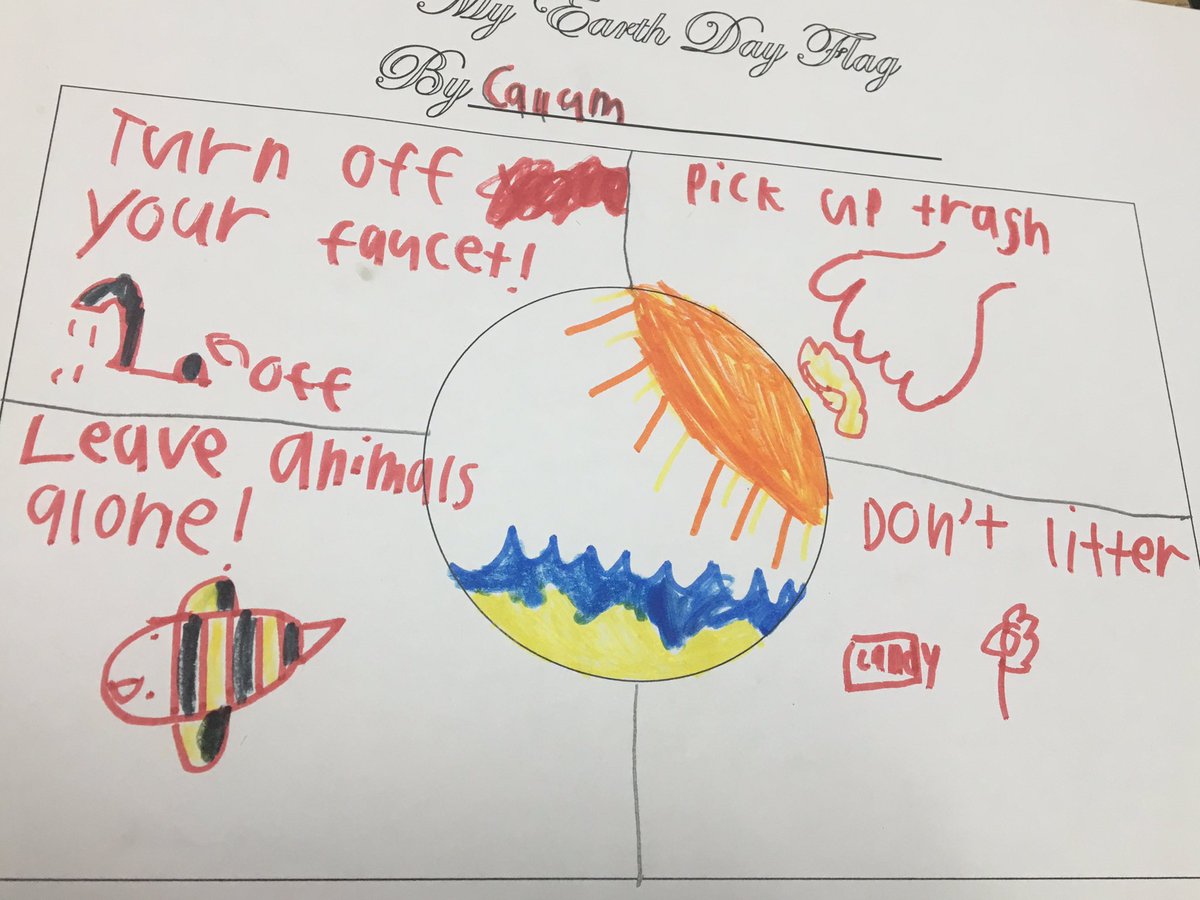 My Earth Day Flag
By Callum
Turn off
your faucet!
off
Pick up trash
Leave animals
alone!
Don't litter
candy